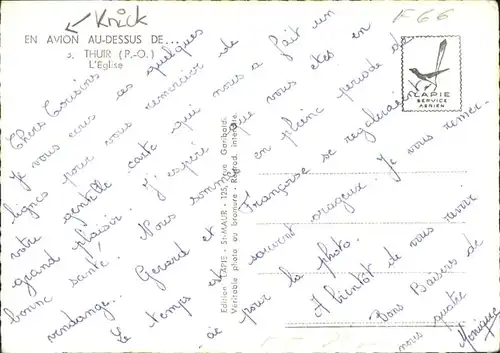 Knick
F66
EN AVION AU-DESSUS DE...
3. THUIR (P.-O.)
L'Eglise
LAPIE
SERVICE
AERIEN
Edition LAPIE - St-MAUR - 125, rue Garibaldi.
Véritable photo au bromure - Reprod. interdite.
Chers Cousins
Je vous écris ces quelques
lignes pour vous remercier de
votre gentille carte qui nous a fait un
grand plaisir. J'espère que vous êtes en
bonne santé. Nous sommes en pleine période de
vendange. Gérard et Françoise se régaleraient
Le temps est souvent orageux. Je vous remer-
ciè pour la photo.
A bientôt de vous revoir
Bons Baisers de
nous quatre
Monique